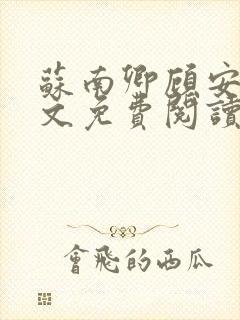 蘇南卿顧安
文免費閱讀
會飛的西瓜